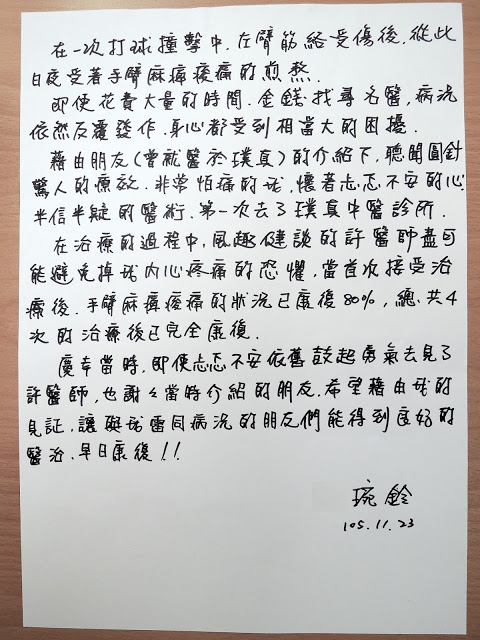 在一次打球撞擊中，左臂筋絡受傷後，從此
日夜受著手臂麻痺痠痛的煎熬．
即使花費大量的時間．金錢找尋名醫，病況
依然反覆發作．身心都受到相當大的困擾．
藉由朋友(曾就醫於璞真)的介紹下，聽聞圓針
驚人的療效．非常怕痛的我，懷著忐忑不安的心
半信半疑的醫術．第一次去了璞真中醫診所．
在治療的過程中，風趣健談的許醫師盡可
能避免掉我內心疼痛的恐懼，當首次接受治
療後．手臂麻痺痠痛的狀況已康後80%，總共4
次的治療後已完全康復．
慶幸當時，即使忐忑不安依舊鼓起勇氣去見了
許醫師，也謝々當時介紹的朋友．希望藉由我的
見証，讓與我雷同病況的朋友們能得到良好的
醫治．早日康後!!
琬鈴
105.11.23